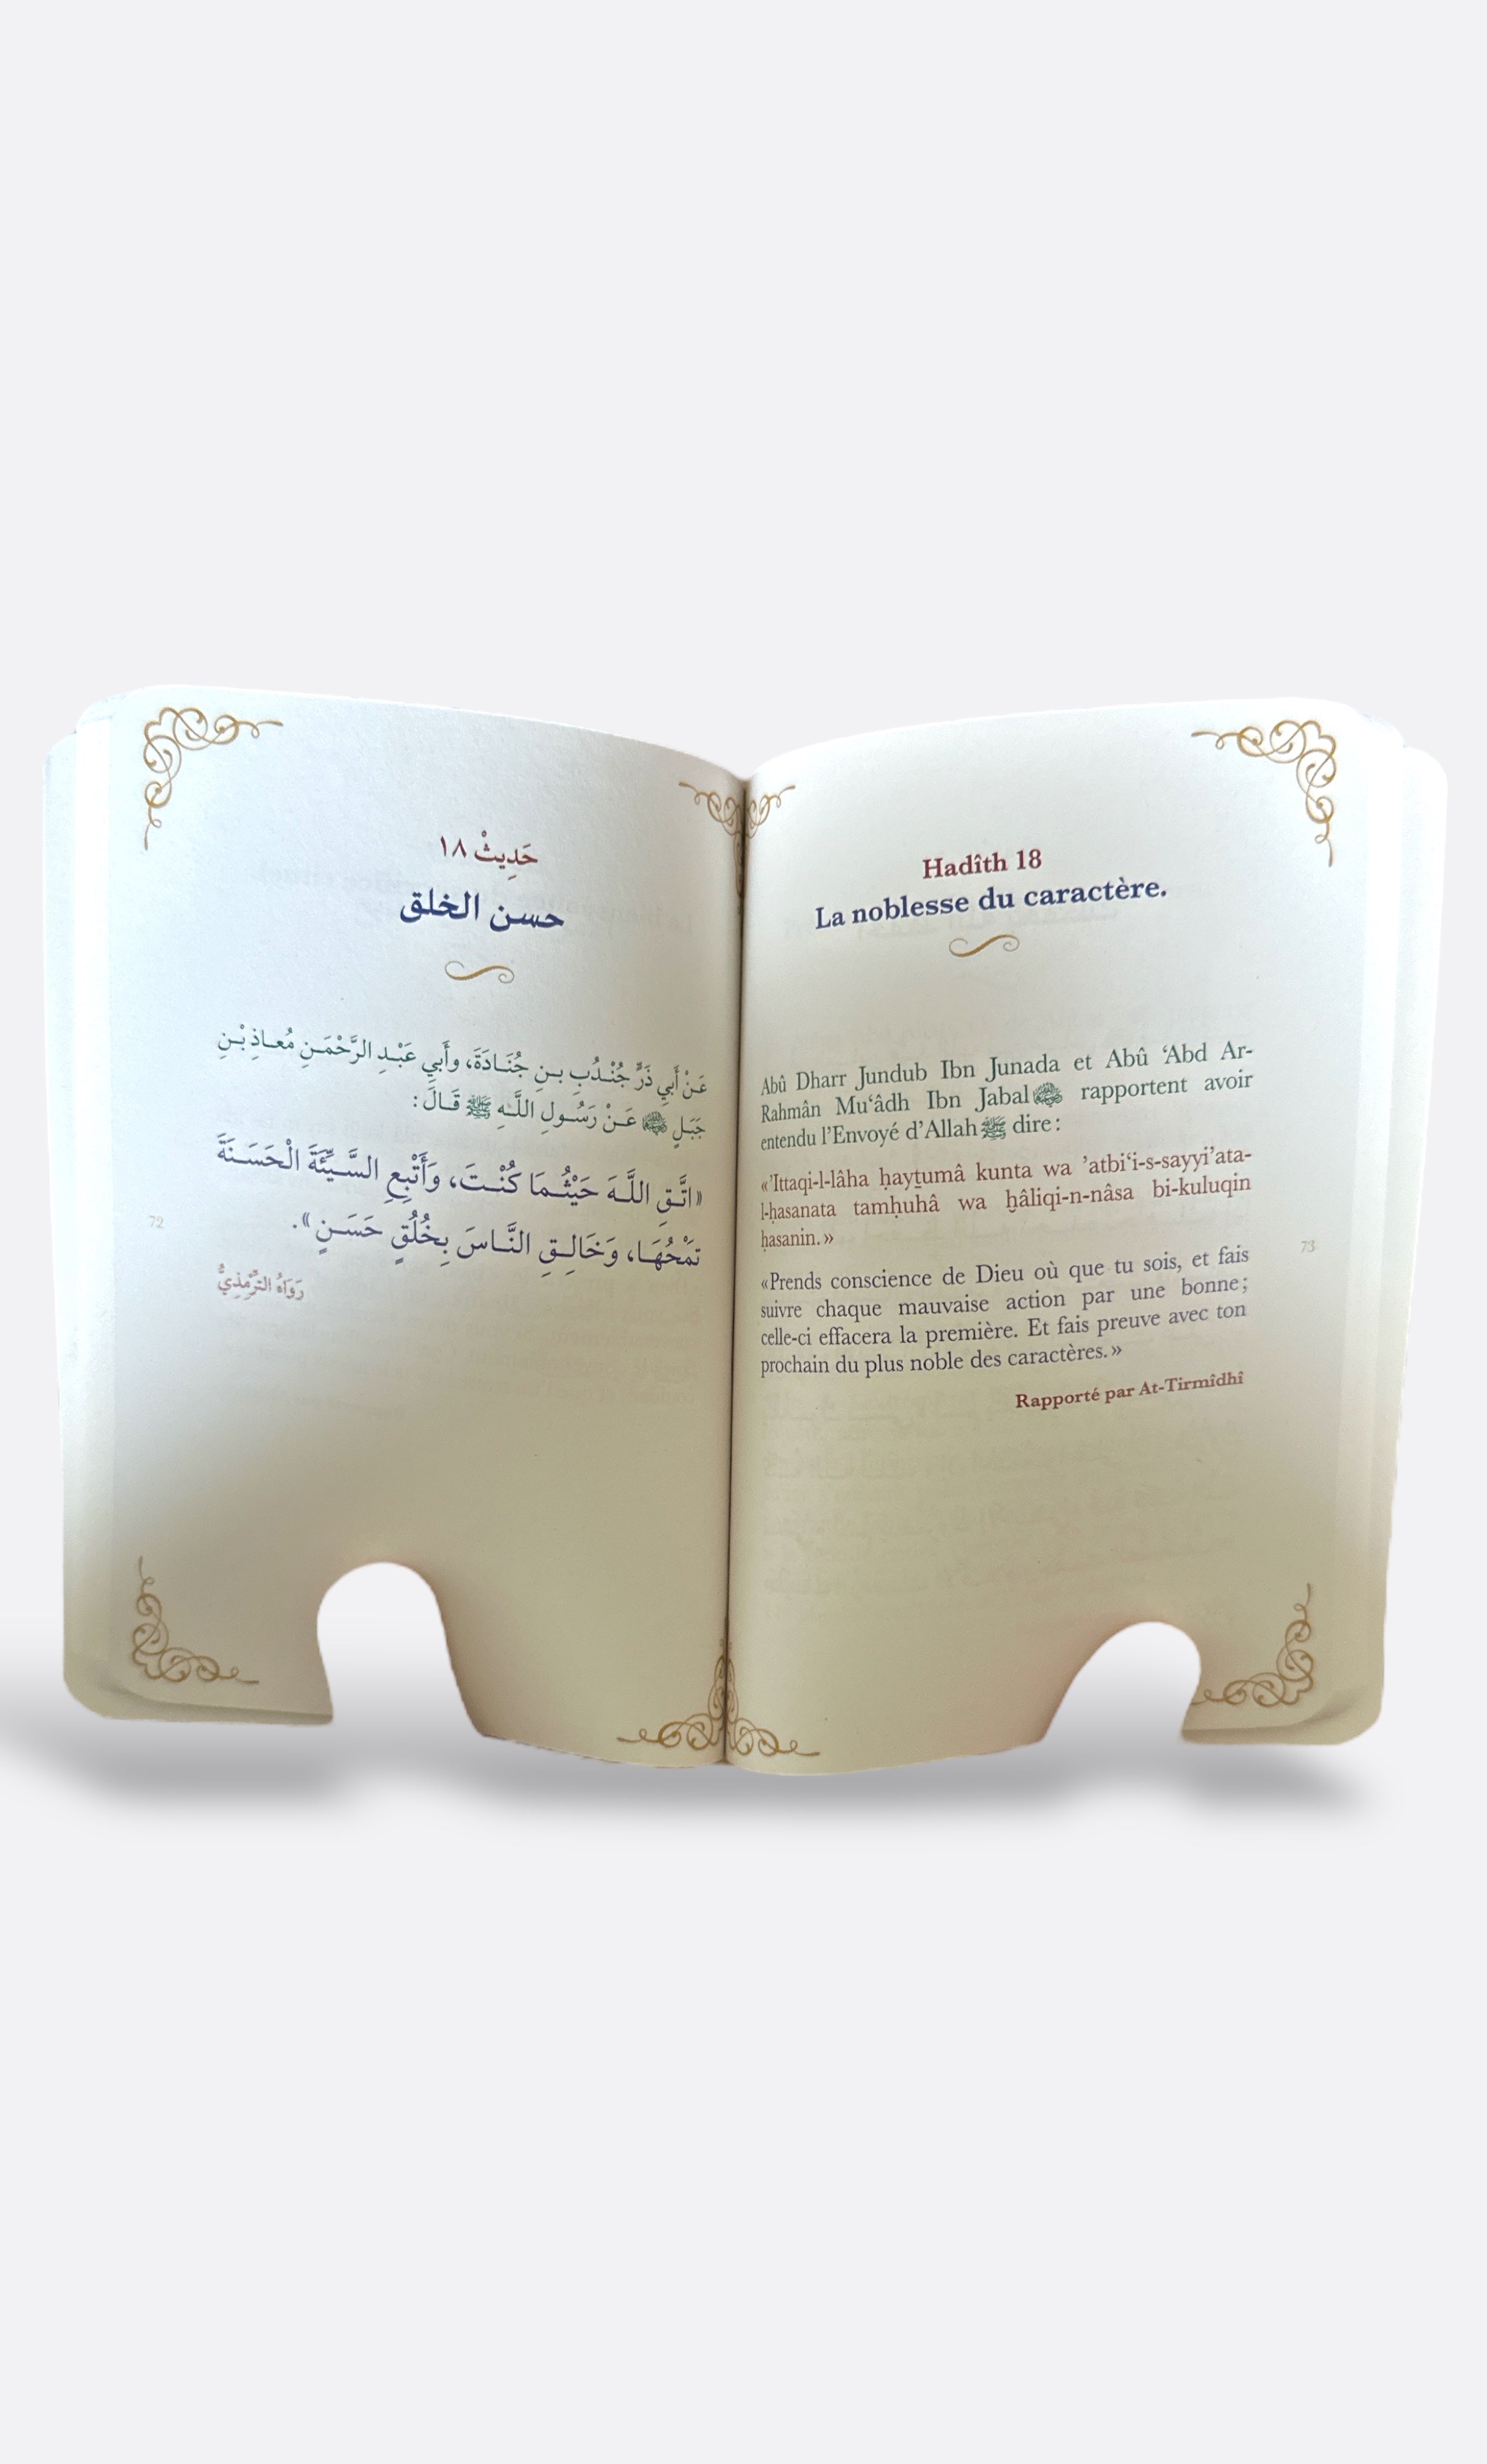 حَدِيثْ ١٨
حسن الخلق
عَنْ أَبِي ذَرٍّ جُنْدُبِ بنِ جُنَادَةَ، وأَبِي عَبْدِ الرَّحْمَنِ مُعاذِ بْنِ
جَبَلٍ ﷺ عَنْ رَسُولِ اللَّهِ ﷺ قَالَ:
«اتَّقِ اللَّهَ حَيْثُمَا كُنْتَ، وَأَتْبِعِ السَّيِّئَةَ الْحَسَنَةَ
تَمْحُهَا، وَخَالِقِ النَّاسَ بِخُلُقٍ حَسَنٍ».
رَوَاهُ التِّرْمِذِيُّ
72
Hadîth 18
La noblesse du caractère.
Abû Dharr Jundub Ibn Junada et Abû ‘Abd Ar-
Rahmân Mu‘âdh Ibn Jabal rapportent avoir
entendu l’Envoyé d’Allah ﷺ dire :
«’Ittaqi-l-lâha ḥayṯumâ kunta wa ’atbi‘i-s-sayyi’ata-
l-ḥasanata tamḥuhâ wa ḫâliqi-n-nâsa bi-kuluqin
ḥasanin. »
«Prends conscience de Dieu où que tu sois, et fais
suivre chaque mauvaise action par une bonne ;
celle-ci effacera la première. Et fais preuve avec ton
prochain du plus noble des caractères. »
Rapporté par At-Tirmîdhî
73